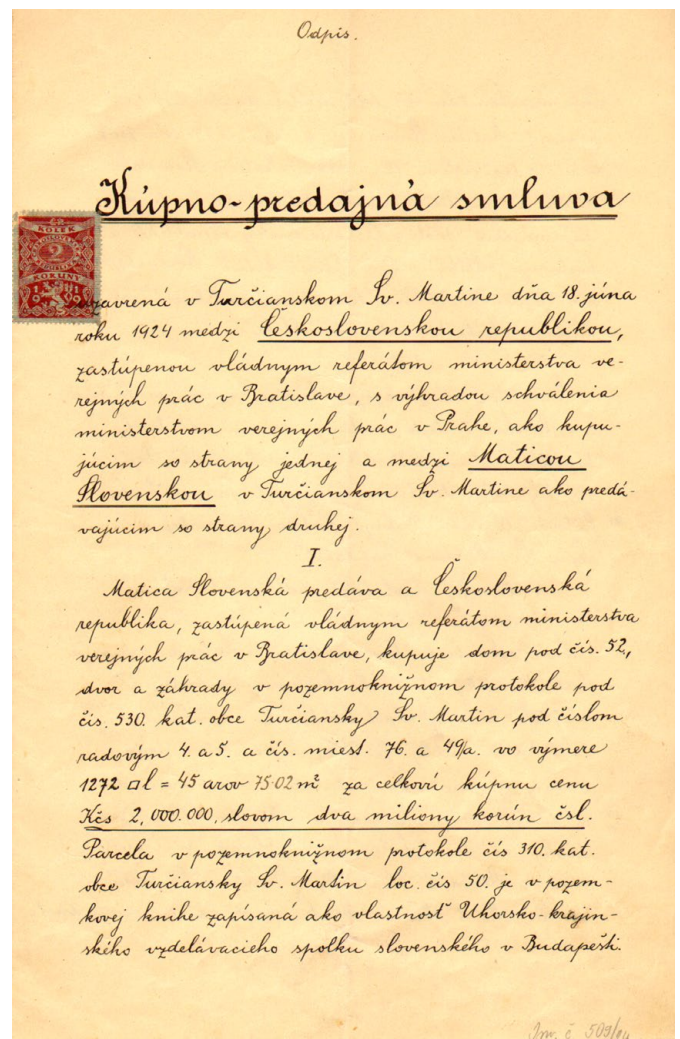 Odpis.
Kúpno-predajná smluva
KOLEK
2
KORUNY
uzavrená v Turčianskom Sv. Martine dňa 18. júna
roku 1924 medzi Československou republikou,
zastúpenou vládnym referátom ministerstva ve-
rejných prác v Bratislave, s výhradou schválenia
ministerstvom verejných prác v Prahe, ako kupu-
júcim so strany jednej a medzi Maticou
Slovenskou v Turčianskom Sv. Martine ako predá-
vajúcim so strany druhej.
I.
Matica Slovenská predáva a Československá
republika, zastúpená vládnym referátom ministerstva
verejných prác v Bratislave, kupuje dom pod čís. 52,
dvor a záhrady v pozemnoknižnom protokole pod
čís. 530. kat. obce Turčiansky Sv. Martin pod číslom
radovým 4. a 5. a čís. miest. 76. a 49/a. vo výmere
1272 □l = 45 arov 75·02 m² za celkovú kúpnu cenu
Kčs 2,000.000, slovom dva miliony korún čsl.
Parcela v pozemnoknižnom protokole čís 310. kat.
obce Turčiansky Sv. Martin loc. čís 50. je v pozem-
kovej knihe zapísaná ako vlastnosť Uhorsko-krajin-
ského vzdelávacieho spolku slovenského v Budapešti.
Inv. č 509/